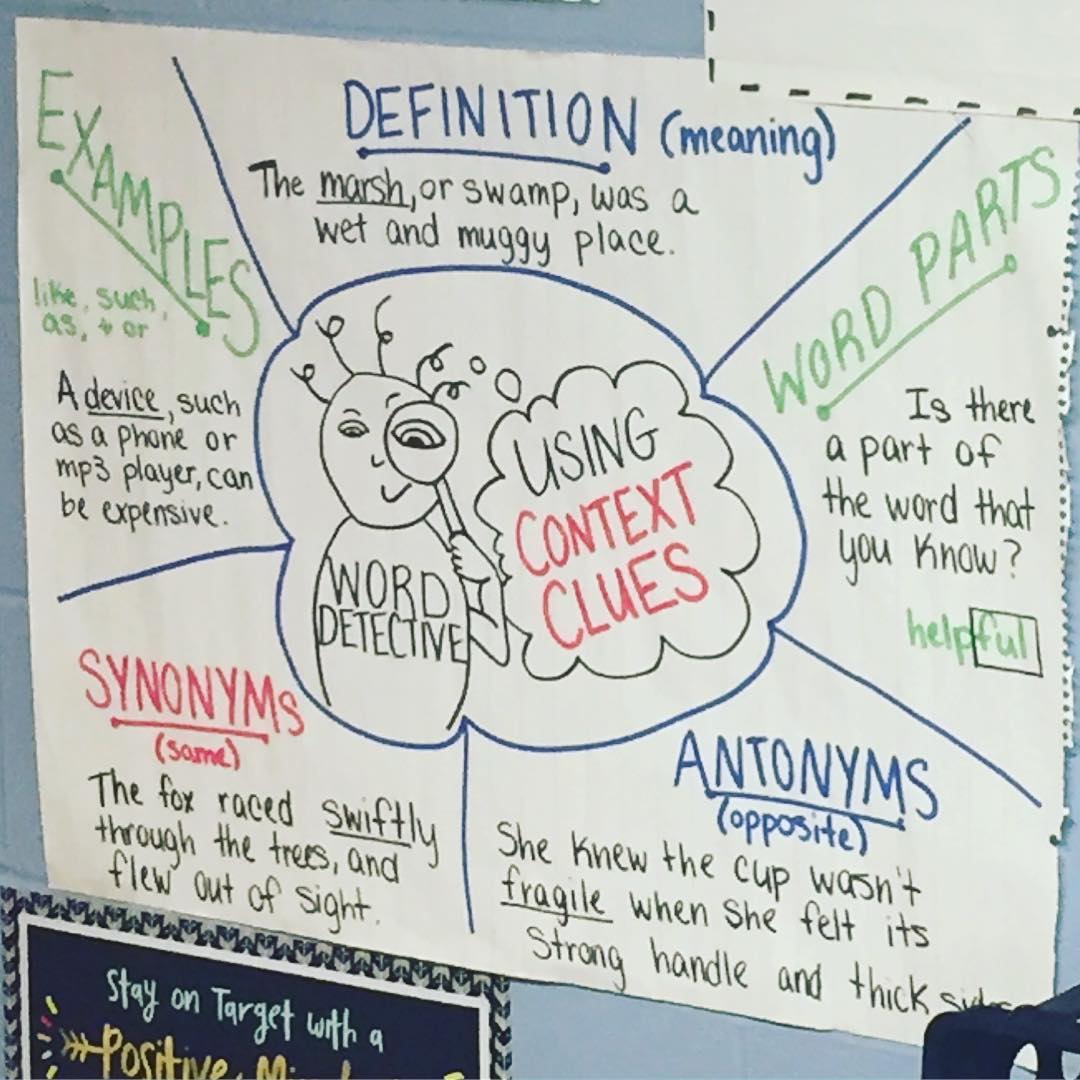 DEFINITION (meaning)
The marsh, or swamp, was a
wet and muggy place.
EXAMPLES
like, such
as, + or
A device, such
as a phone or
mp3 player, can
be expensive.
WORD PARTS
Is there
a part of
the word that
you know?
helpful
USING
CONTEXT
CLUES
WORD
DETECTIVE
SYNONYMS
(same)
The fox raced swiftly
through the trees, and
flew out of sight.
ANTONYMS
(opposite)
She knew the cup wasn't
fragile when she felt its
strong handle and thick
Stay on Target with a
Positive